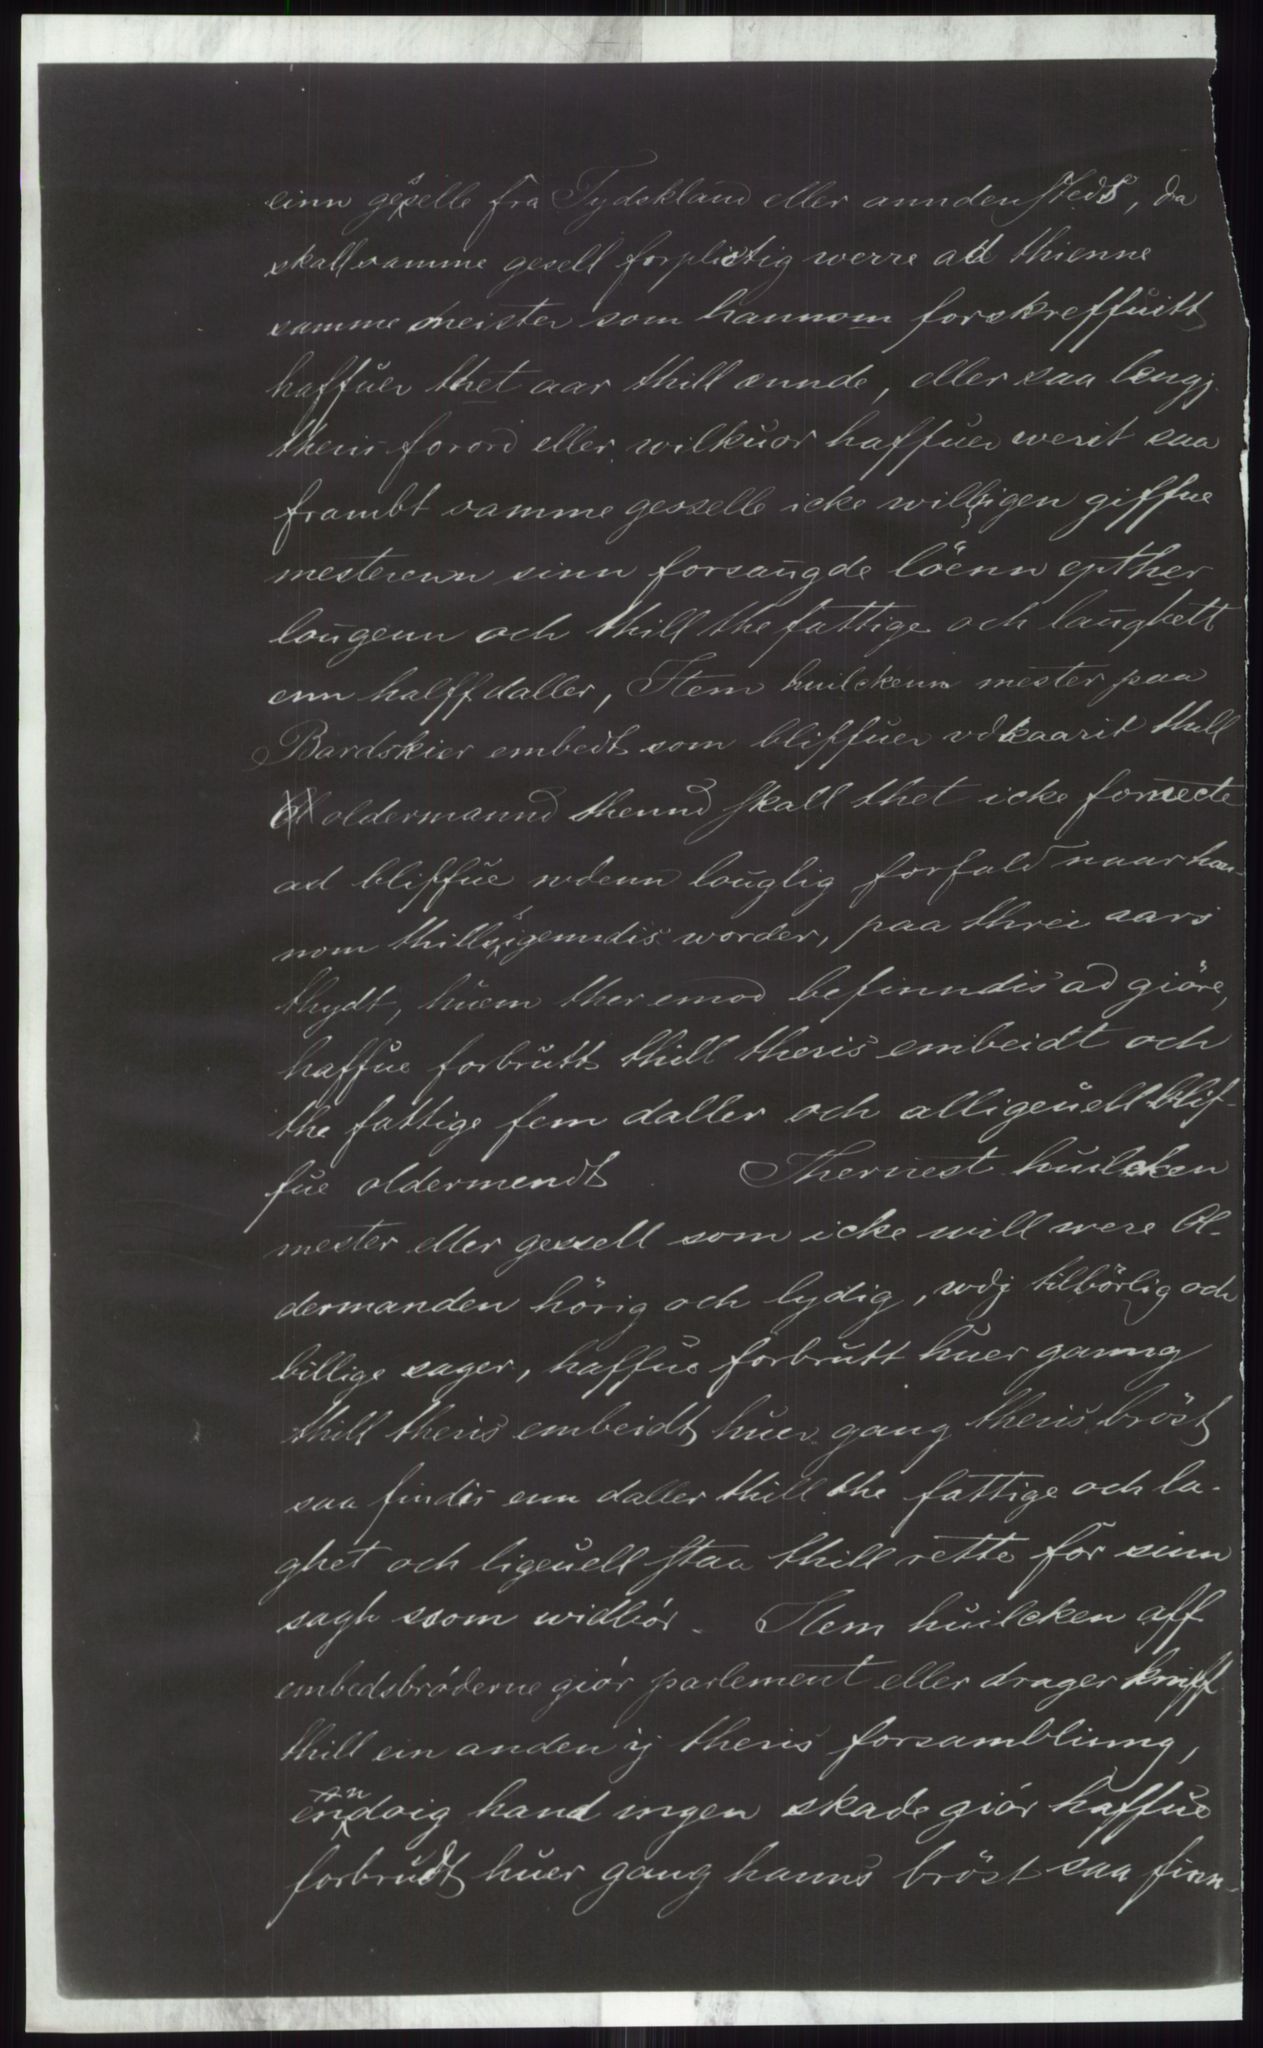 einn geselle fra Tydskland eller annden stedt, da
skall samme gesell forplictig werre ad thienne
samme meister som hannom forskreffuitt
haffuer thet aar thill ennde, eller saa lengj
theris forord eller wilkuor haffuer werit saa
frambt samme gesselle icke willigen giffue
mesterenn sinn forsaugde löenn epther
lougenn och thill the fattige och laughett
enn halff daller, Item huilckenn mester paa
Bardskier embedt som bliffuer vdkaarit thill
oldermannd thennd skall thet icke fornecte
ad bliffue wdenn louglig forfald naar han-
nom thillsigenndis worder, paa threi aars
thydt, huem ther emod befinndis ad giöre,
haffue forbrutt thill theris embeidt och
the fattige fem daller och alligeuell blif-
fue oldermendt Thernest huilcken
mester eller gessell som icke will were Ol-
dermanden hörig och lydig, wdj tilbörlig och
billige sager, haffue forbrutt huer ganng
thill theris embeidt huer gang theris bröst
saa findis enn daller thill the fattige och la-
ghet och ligeuell staa thill rette for sinn
sagh ssom widbör. Item huilcken aff
embedsbröderne giör parlement eller drager kniff
thill ein anden ij theris forsamblinng,
endoig hand ingen skade giör haffue
forbrudt huer gang hanns bröst saa finn-